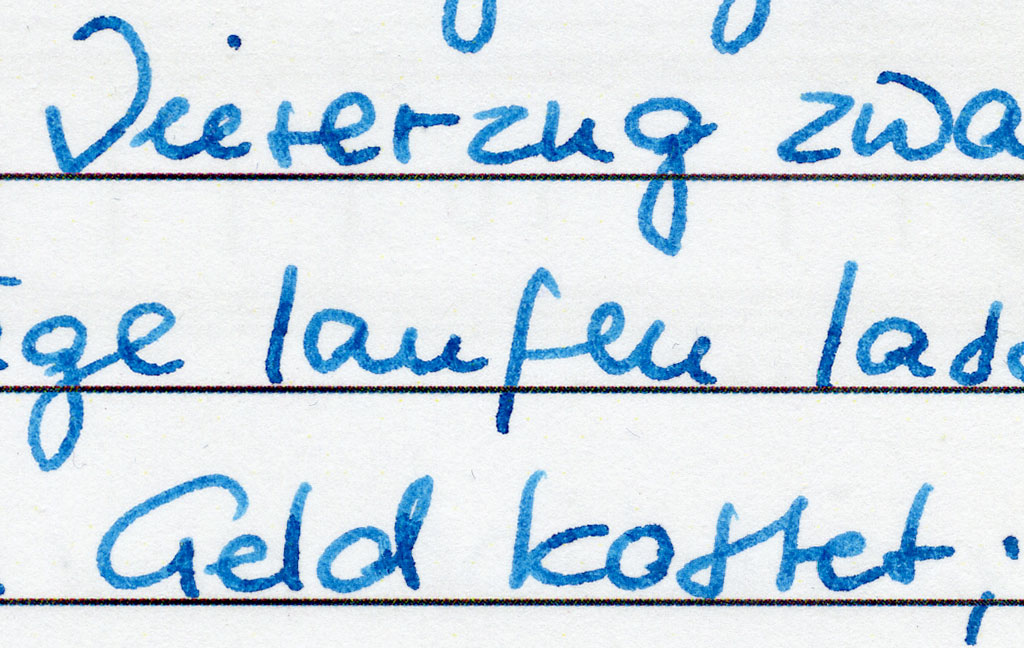 Viererzug zwa
ge laufen las
. Geld kostet;